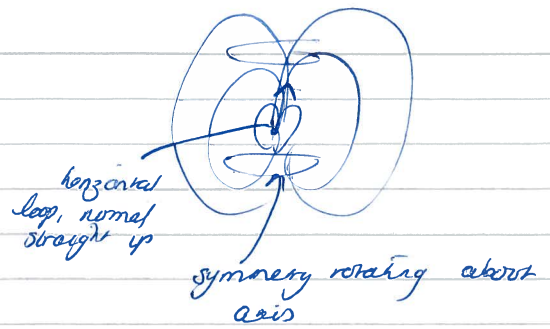 horizontal
loop, normal
straight up
symmery rotating about
axis